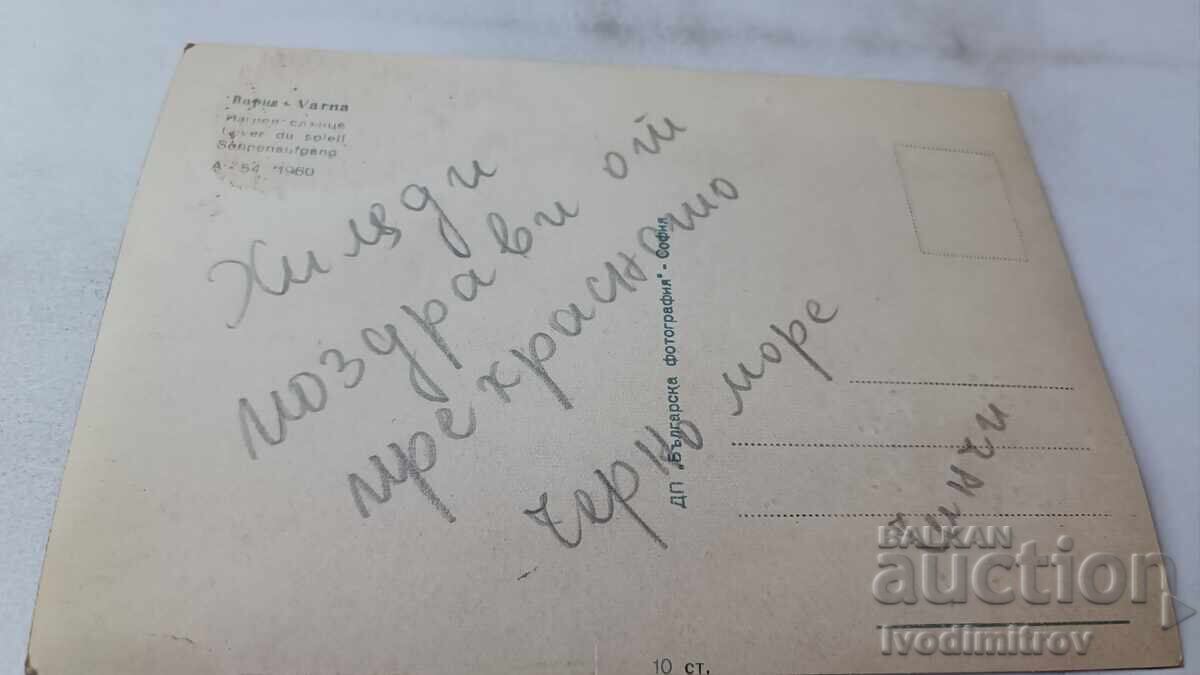 Варна - Varna
Изгрев-слънце
Lever du soleil
Sonnenaufgang
А - 54 1960
Хиляди
поздрави от
прекрасното
Черно море
ДП „Българска фотография" - София
10 ст.
BALKAN
auction
Ivodimitrov